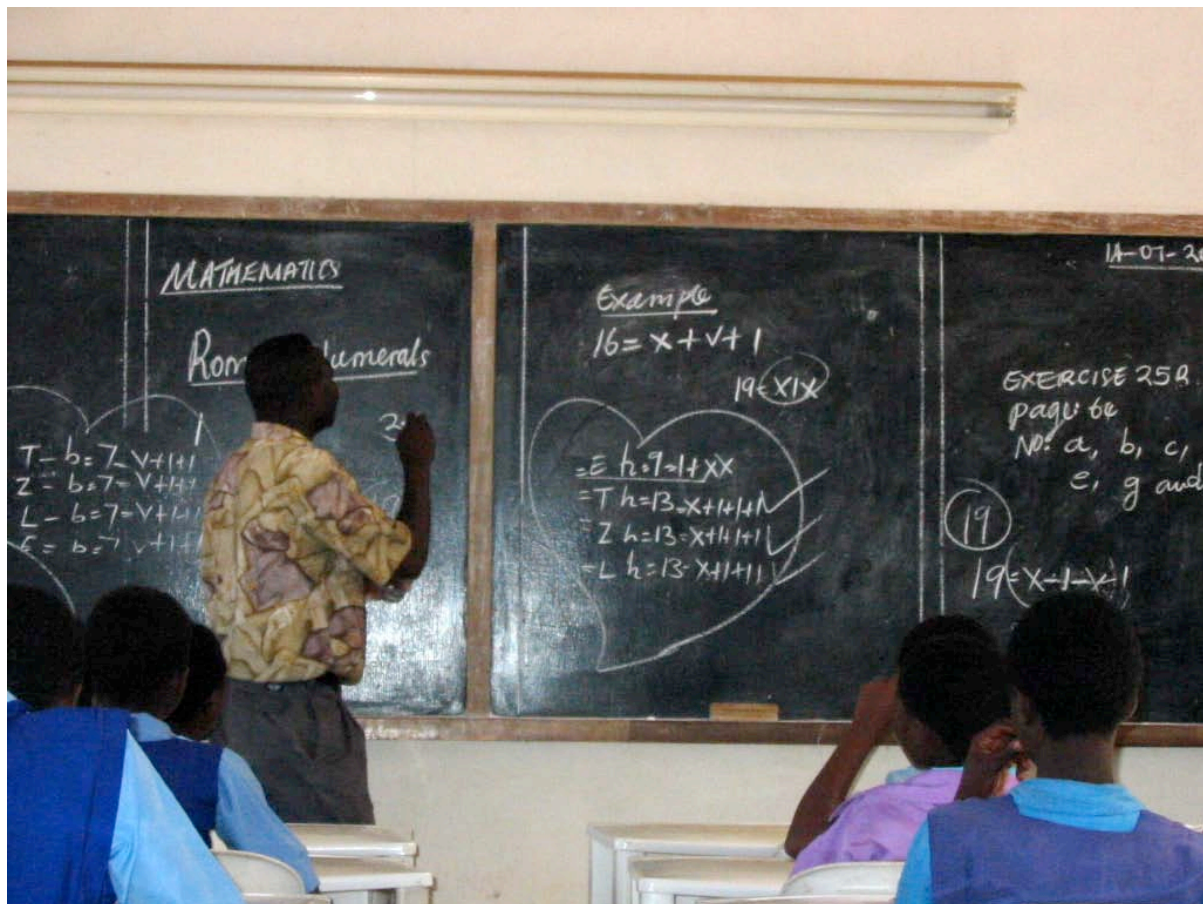 MATHEMATICS
Rom umerals
1
T - b = 7 - V+1+1
Z - b = 7 - V+1+1
L - b = 7 - V+1+1
E = b = 7 V+1+1
Example
16 = X + V + 1
19 = XIX
= E h = 9 = 1 + XX
= T h = 13 = X+1+1+1
= Z h = 13 = X+1+1+1
= L h = 13 = X+1+11
14-07-20
EXERCISE 25a
page: 64
No: a, b, c,
e, g and
19
19 = X - 1 - X + 1